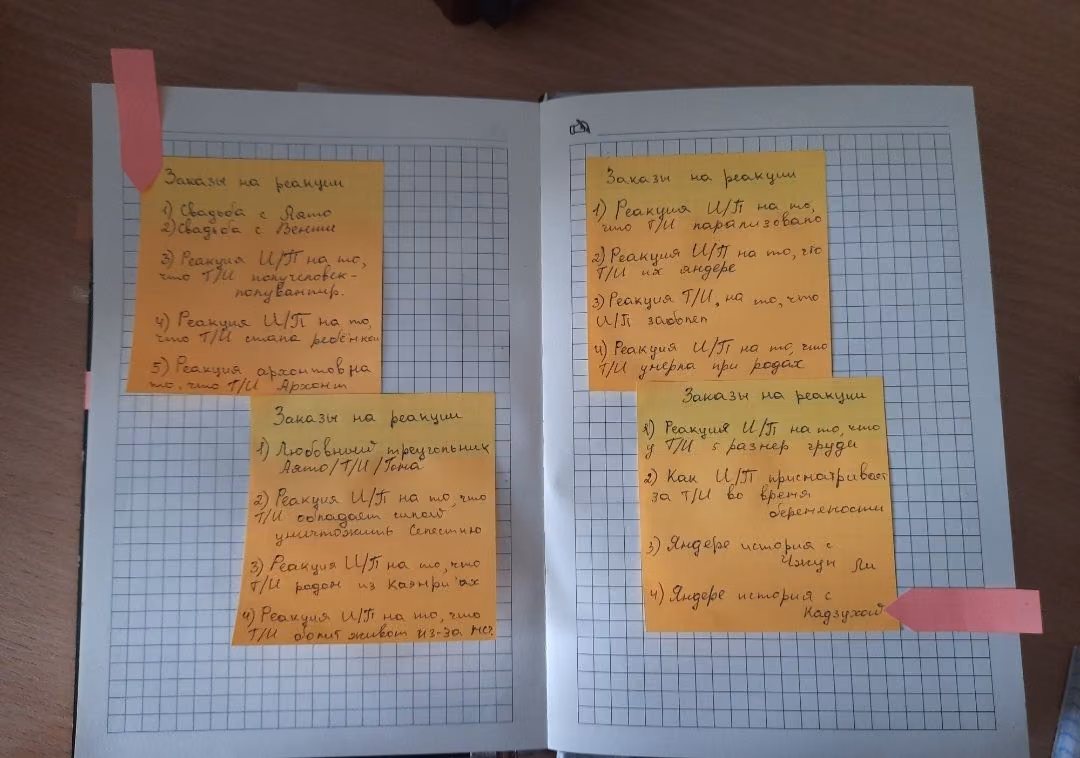 Заказы на реакции
1) Свадьба с Аято
2) Свадьба с Венти
3) Реакция И/П на то,
что Т/И получеловек-
полувампир.
4) Реакция И/П на то,
что Т/И стала ребёнком
5) Реакция архонтов на
то, что Т/И Архонт
Заказы на реакции
1) Любовный треугольник
Аято/Т/И/Тома
2) Реакция И/П на то, что
Т/И обладает силой
уничтожить Селестию
3) Реакция И/П на то, что
Т/И родом из Каэнри'ах
4) Реакция И/П на то, что
Т/И болит живот из-за мес.
Заказы на реакции
1) Реакция И/П на то,
что Т/И парализовано
2) Реакция И/П на то, что
Т/И их яндере
3) Реакция Т/И, на то, что
И/П заболел
4) Реакция И/П на то, что
Т/И умерла при родах
Заказы на реакции
1) Реакция И/П на то, что
у Т/И 5 размер груди
2) Как И/П присматривает
за Т/И во время
беремености
3) Яндере история с
Чжун Ли
4) Яндере история с
Кадзухой